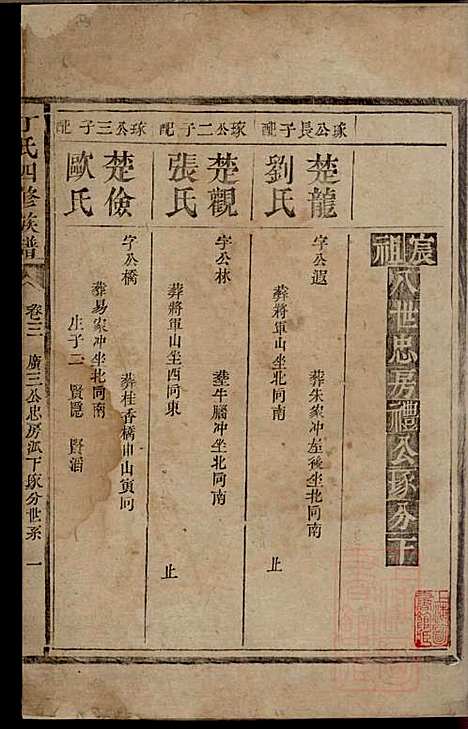 宸祖
八世忠房禮公琢分下
琢公長子 配
楚龍
劉氏
字公遐 葬朱家冲左後坐北向南
葬將軍山坐北向南 止
琢公二子 配
楚觀
張氏
字公林 葬牛腦冲坐北向南
葬將軍山坐西向東 止
琢公三子 配
楚儉
歐氏
字公橋 葬桂香橋申山寅向
葬易家冲坐北向南
生子二 賢隱 賢滔
丁氏四修族譜 卷三 廣三公忠房派下琢分世系 一